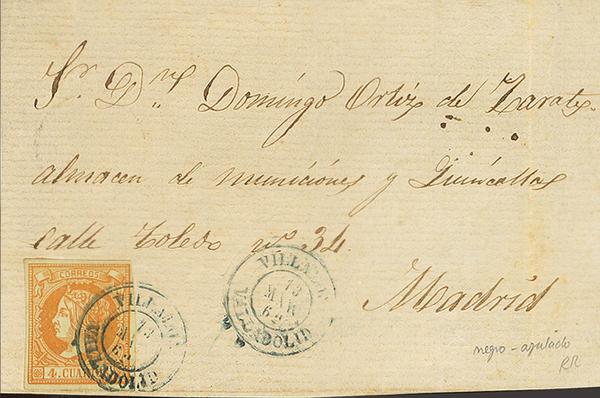 Sr. Dn. Domingo Ortiz de Zarate.
almacen de municiones y Quincallas
calle Toledo nº 34.
Madrid
CORREOS
4 CUAR
VALLADOLID
13
MAR
62
VALLADOLID
13
MAR
62
negro - azulado
RR